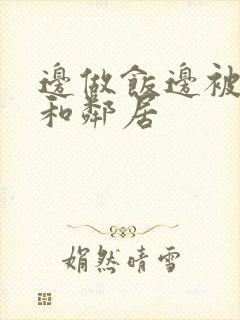 邊做飯邊被
和鄰居
娟然晴雪